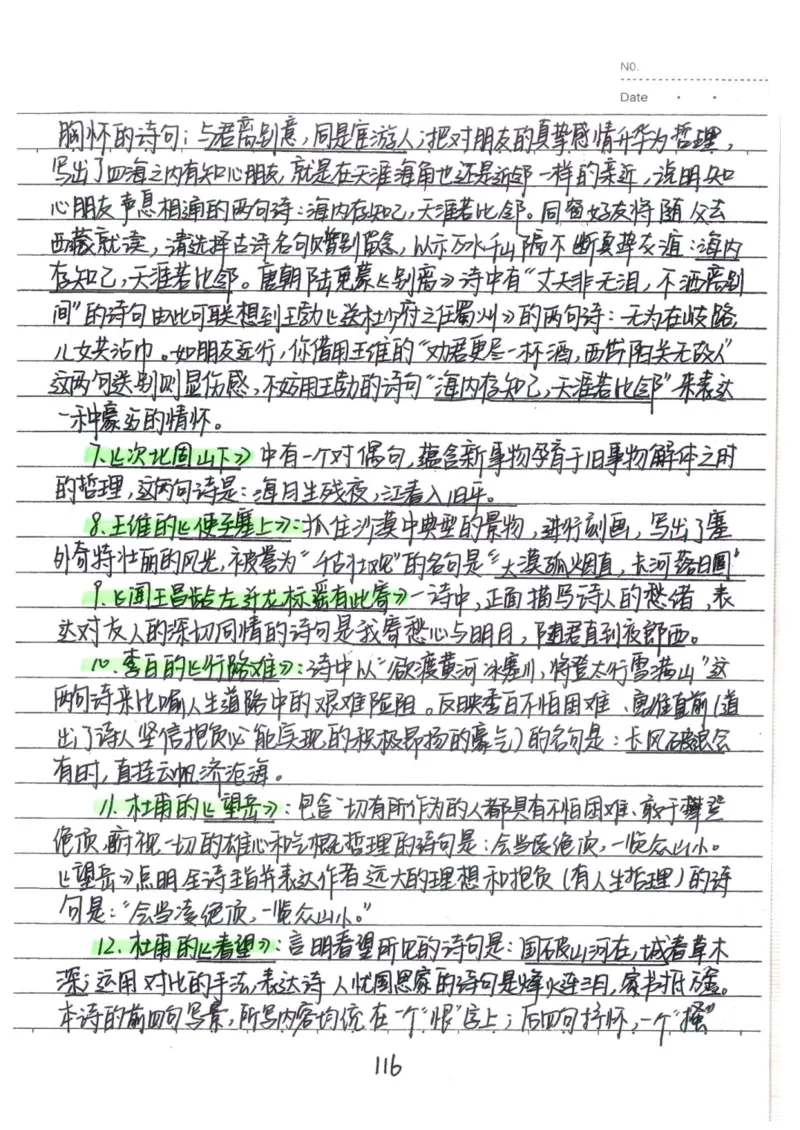 NO.
Date
胸怀的诗句：与君离别意，同是宦游人；把对朋友的真挚感情升华为哲理，
写出了四海之内有知心朋友，就是在天涯海角也还是近邻一样的亲近，说明知
心朋友声息相通的两句诗：海内存知己，天涯若比邻。同窗好友将随父去
西藏就读，请选择古诗名句赠别留念，以示万水千山隔不断真挚友谊：海内
存知己，天涯若比邻。唐朝陆龟蒙《别离》诗中有“丈夫非无泪，不洒离别
间”的诗句由此可联想到王勃《送杜少府之任蜀州》的两句诗：无为在歧路，
儿女共沾巾。如朋友远行，你借用王维的“劝君更尽一杯酒，西出阳关无故人”
这两句送别则显伤感，不妨用王勃的诗句“海内存知己，天涯若比邻”来表达
一种豪迈的情怀。
7.《次北固山下》中有一个对偶句，蕴含新事物孕育于旧事物解体之时
的哲理，这两句诗是：海日生残夜，江春入旧年。
8.王维的《使至塞上》：抓住沙漠中典型的景物，进行刻画，写出了塞
外奇特壮丽的风光，被誉为“千古壮观”的名句是“大漠孤烟直，长河落日圆”
9.《闻王昌龄左迁龙标遥有此寄》一诗中，正面描写诗人的愁绪、表
达对友人的深切同情的诗句是我寄愁心与明月，随君直到夜郎西。
10.李白的《行路难》：诗中以“欲渡黄河冰塞川，将登太行雪满山”这
两句诗来比喻人生道路中的艰难险阻。反映李白不怕困难、勇往直前（道
出了诗人坚信抱负必能实现的积极昂扬的豪气）的名句是：长风破浪会
有时，直挂云帆济沧海。
11.杜甫的《望岳》：包含一切有所作为的人都具有不怕困难、敢于攀登
绝顶、俯视一切的雄心和气概哲理的诗句是：会当凌绝顶，一览众山小。
《望岳》点明全诗主旨并表达作者远大的理想和抱负（有人生哲理）的诗
句是：“会当凌绝顶，一览众山小。”
12.杜甫的《春望》：言明春望所见的诗句是：国破山河在，城春草木
深；运用对比的手法，表达诗人忧国思家的诗句是烽火连三月，家书抵万金。
本诗的前四句写景，所写内容均统在一个“恨”字上；后四句抒怀，一个“搔”
116